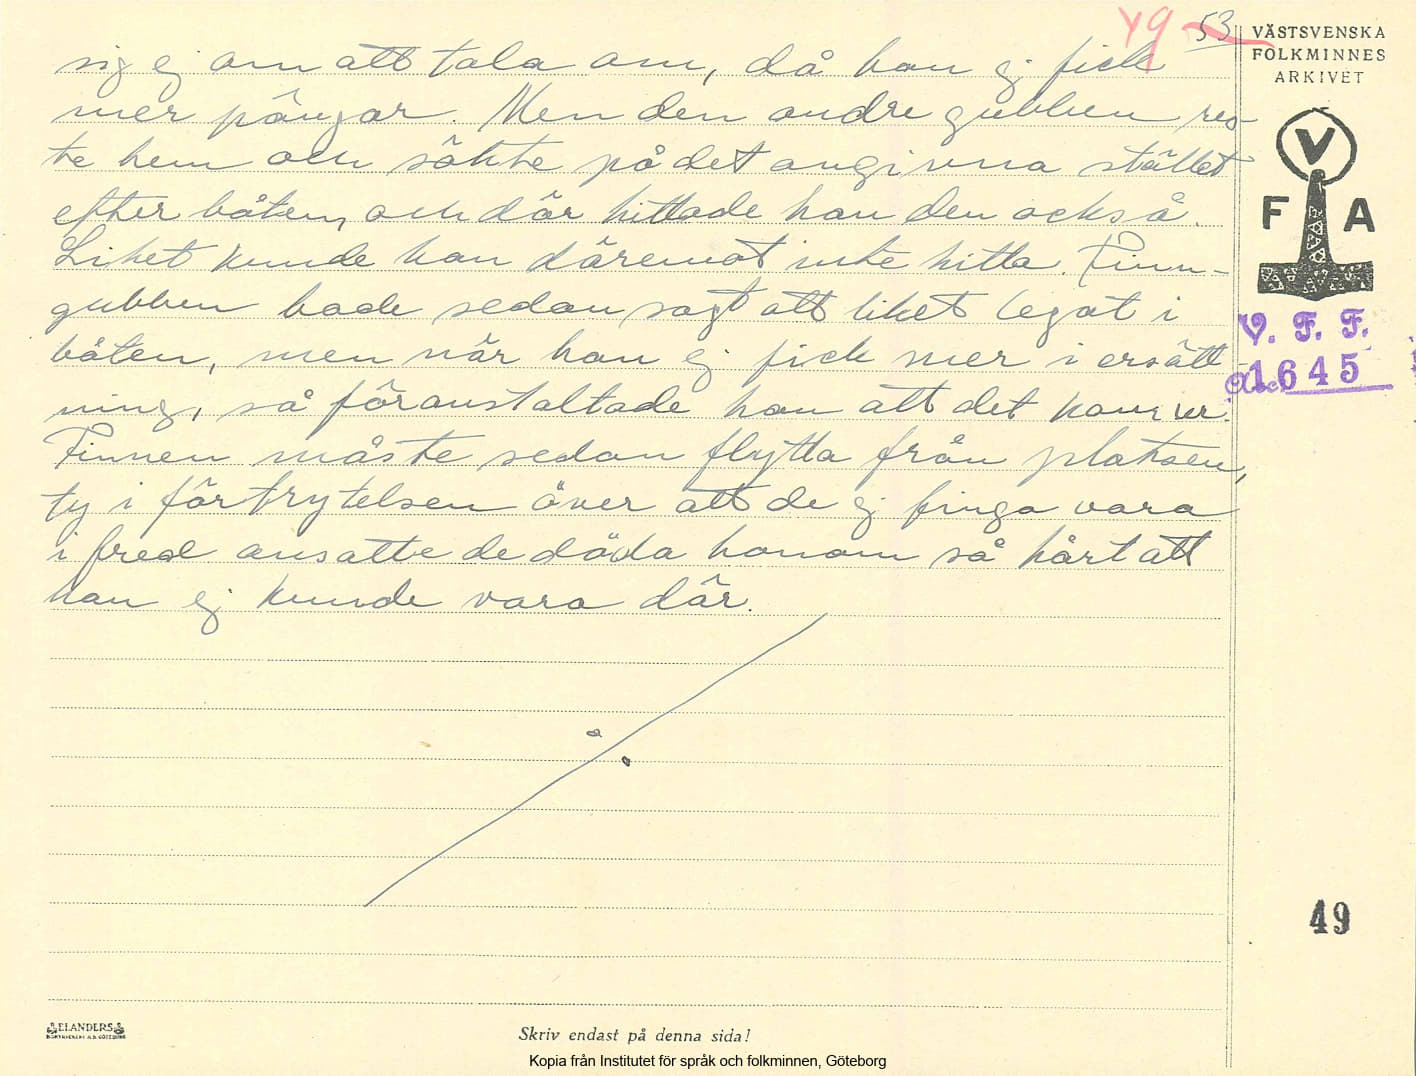 49 53
VÄSTSVENSKA
FOLKMINNES
ARKIVET
sig ej om att tala om, då han ej fick
mer pängar. Men den andre gubben res-
te hem och sökte på det angivna stället
efter båten, och där hittade han den också.
Liket kunde han däremot inte hitta. Finn-
gubben hade sedan sagt att liket legat i
båten, men när han ej fick mer i ersätt
ning, så föranstaltade han att det kom ur.
Finnen måste sedan flytta från platsen,
ty i förtrytelsen över att de ej fingo vara
i fred ansatte de döda honom så hårt att
han ej kunde vara där.
V
F A
V. F. F.
Acc. 1645
49
ELANDERS
Skriv endast på denna sida!
Kopia från Institutet för språk och folkminnen, Göteborg